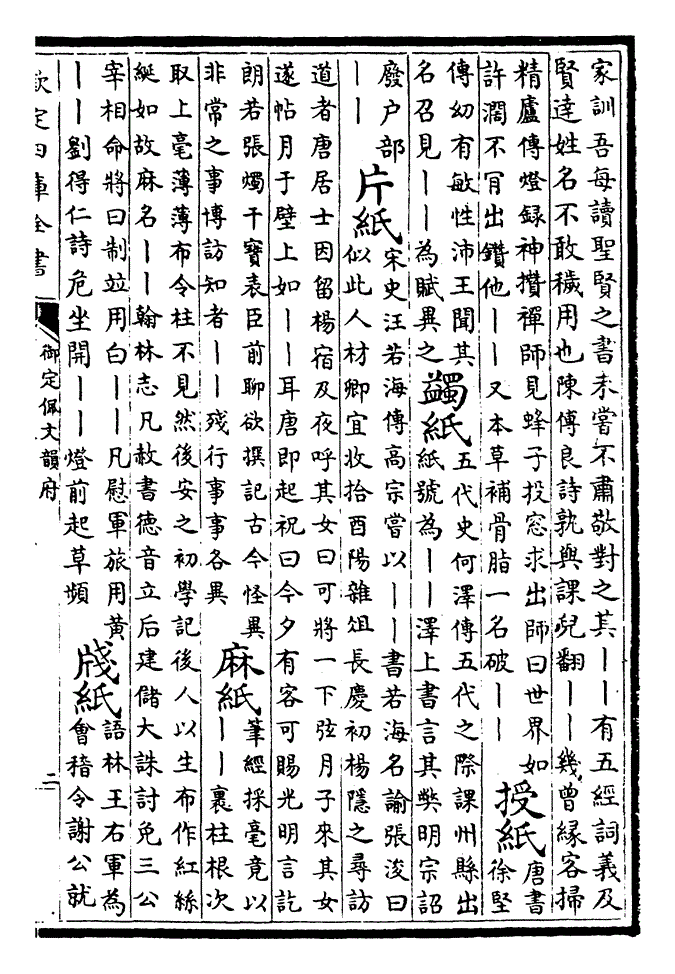 家訓吾每讀聖賢之書未嘗不肅敬對之其丨丨有五經詞義及
賢達姓名不敢穢用也陳傅良詩孰與課兒翻丨丨幾曾縁客掃
精廬傳燈録神攢禪師見蜂子投窓求出師曰世界如
許濶不肎出鑽他丨丨又本草補骨脂一名破丨丨
授紙
唐書
徐堅
傳幼有敏性沛王聞其
名召見丨丨為賦異之
蠲紙
五代史何澤傳五代之際課州縣出
紙號為丨丨澤上書言其獘明宗詔
廢户部
丨丨
片紙
宋史汪若海傳高宗嘗以丨丨書若海名諭張浚曰
似此人材卿宜收拾酉陽雜俎長慶初楊隱之尋訪
道者唐居士因留楊宿及夜呼其女曰可將一下弦月子來其女
遂帖月于壁上如丨丨耳唐即起祝曰今夕有客可賜光明言訖
朗若張燭干寳表臣前聊欲撰記古今怪異
非常之事博訪知者丨丨殘行事事各異
麻紙
筆經採毫竟以
丨丨裹柱根次
取上毫薄薄布令柱不見然後安之初學記後人以生布作紅絲
綖如故麻名丨丨翰林志凡赦書德音立后建儲大誅討免三公
宰相命將曰制並用白丨丨凡慰軍旅用黄
丨丨劉得仁詩危坐開丨丨燈前起草頻
牋紙
語林王右軍為
會稽令謝公就
欽定四庫全書
御定佩文韻府
二